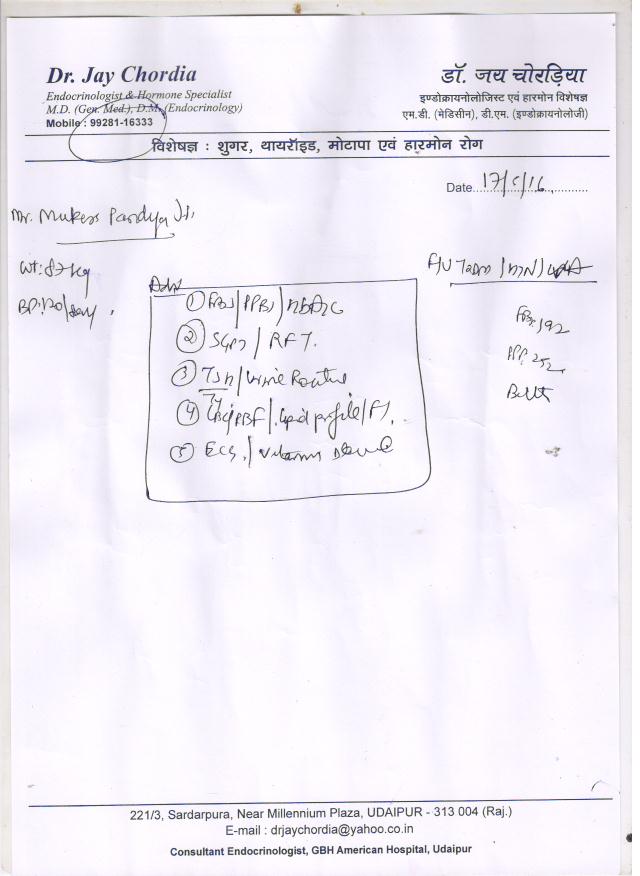 Dr. Jay Chordia
Endocrinologist & Hormone Specialist
M.D. (Gen. Med.), D.M. (Endocrinology)
Mobile : 99281-16333
डॉ. जय चोरड़िया
इण्डोक्रायनोलोजिस्ट एवं हारमोन विशेषज्ञ
एम.डी. (मेडिसीन), डी.एम. (इण्डोक्रायनोलोजी)
विशेषज्ञ : शुगर, थायरॉइड, मोटापा एवं हारमोन रोग
Date 17/5/16
Mr. Mukesh Pandya Ji
Wt: 87 kg
F/U T2DM / HTN /
① FBS / PPBS / HbA1C
② SGPT / RFT.
③ TSH / Urine Routine
④ CBC / PBF / Lipid profile /
⑤ ECG / Vitamin D level
FBS: 192
PP: 252
221/3, Sardarpura, Near Millennium Plaza, UDAIPUR - 313 004 (Raj.)
E-mail : drjaychordia@yahoo.co.in
Consultant Endocrinologist, GBH American Hospital, Udaipur